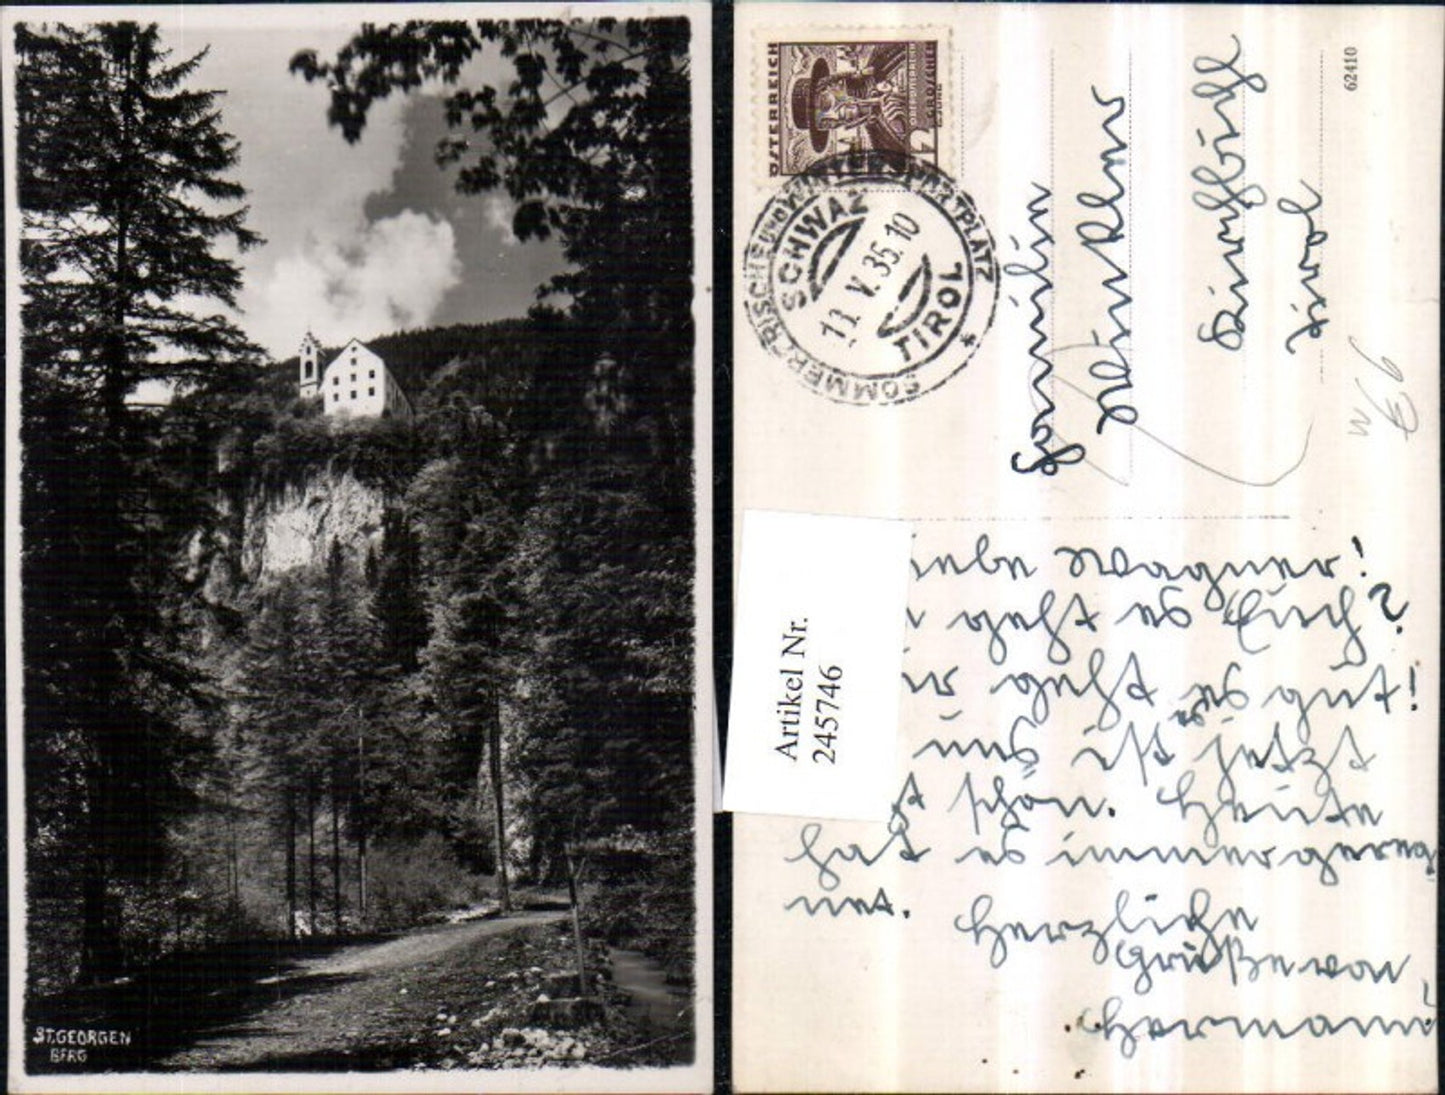 ST.GEORGEN
BERG
ÖSTERREICH
OBERÖSTERREICH
GROSCHEN
SOMMERFRISCHE UND WINTERSPORTPLATZ
SCHWAZ
13.V.35.10
TIROL
Familie
Kirchbichl
Tirol
62410
Artikel Nr.
245746
iebe Wagner!
geht es Euch?
ir geht es gut!
uns ist es jetzt
t schön. Heute
hat es immer gereg
net. Herzliche
Grüße von
Hermann!